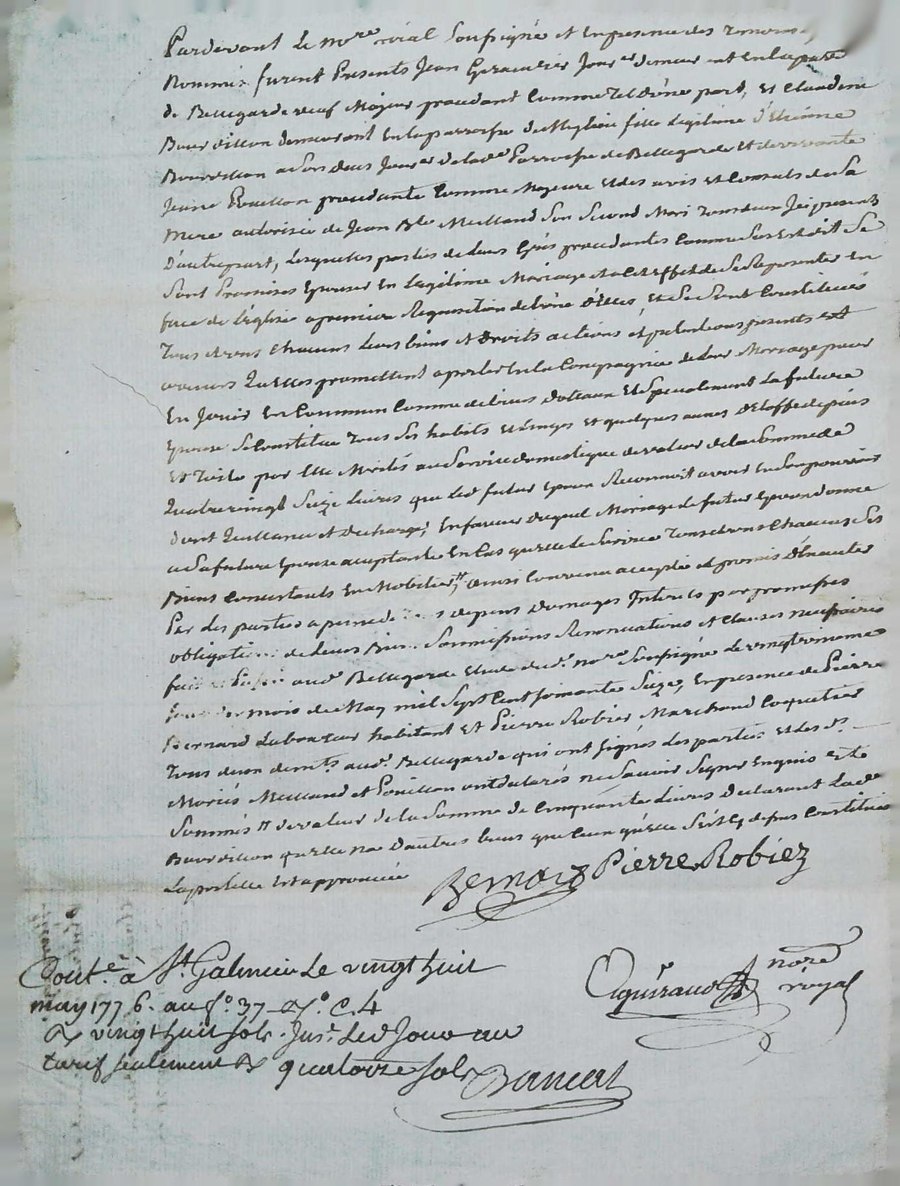 Pardevant Le no.re roial Soussigné et En presence des Temoins
Nommés furent Presents Jean Jour.er demeur.ant En la parr.e
de Bellegarde veuf Majeur procedant Comme Tel d'une part, Et Claudine
Bourdillon demeurant En la parroisse de fille Legitime d'Etienne
Bourdillon a Son deces Jour.er de lad.e Parroisse de Bellegarde Et de vivante
Jeanne Pouillon procedante Comme Majeure Et des avis et Conseils de Sa
Mere autorisée de Jean B.te Meilland Son Second Mari Tous deux Icy presents
D'autre part, Lesquelles parties de leurs Grés procedantes Comme Sus Est dit Se
Sont Promises Epouser En Legitime Mariage et a Cet Effet de Se Presenter En
face de L'eglise a premiere Requisition de L'une d'Elles, Et Se Sont Constitués
Tous et uns Chacuns Leurs biens et Droits actions et pretentions presents Et
avenirs Qu'elles promettent aporter En La Compagnie de Leur Mariage pour
En Jouir En Commun Comme de biens dotaux Et Specialement La future
Epouse Se Constitue Tous Ses habits Et Linges et quelques aunes d'Etoffe de pies
Et Toile par Elle Merités au Service domestique de valeur de la Somme de
Quatre vingt Seize Livres que Led. futur Epoux Reconnoit avoir En Son pouvoir
dont Quittance et Decharge, En faveur duquel Mariage Le futur Epoux donne
a Sa future Epouse acceptante En Cas qu'elle Le Survive Tous et uns Chacuns Ses
Biens Consistants En Mobilier, # ainsi Convenu accepté et promis D'Executer
Par Les parties a peine de depens domages Interets par promesses
obligati de Leurs Bi Soumissions Renonciations et Clauses necessaires
fait et Passé aud. Bellegarde Etude du d. no.re Soussigné Le vingt neuvieme
Jour du mois de May mil Sept Cent Soixante Seize, En presence de Pierre
Bernard Laboureur habitant Et Pierre Robier Marchand Coquetier
Tous deux dem.ts aud. Bellegarde qui ont Signés Les parties Et Les d.s
Mariés Meilland et Pouillon ont declarés ne Savoir Signer Enquis Et
Sommés # de valeur de La Somme de Cinquante Livres Declarant La d.e
Bourdillon qu'elle n'a D'autres biens que Ceux qu'elle S'est Cy dessus Constitués
La postille Est approuvée
Bernard Pierre Robiez
Cont.é à S.t Galmier Le vingt huit
may 1776. au f.o 37 R.o C. 4
R vingt huit sols. Ins.é Led Jour au
tarif seulement R quatorze sols
no.re
royal